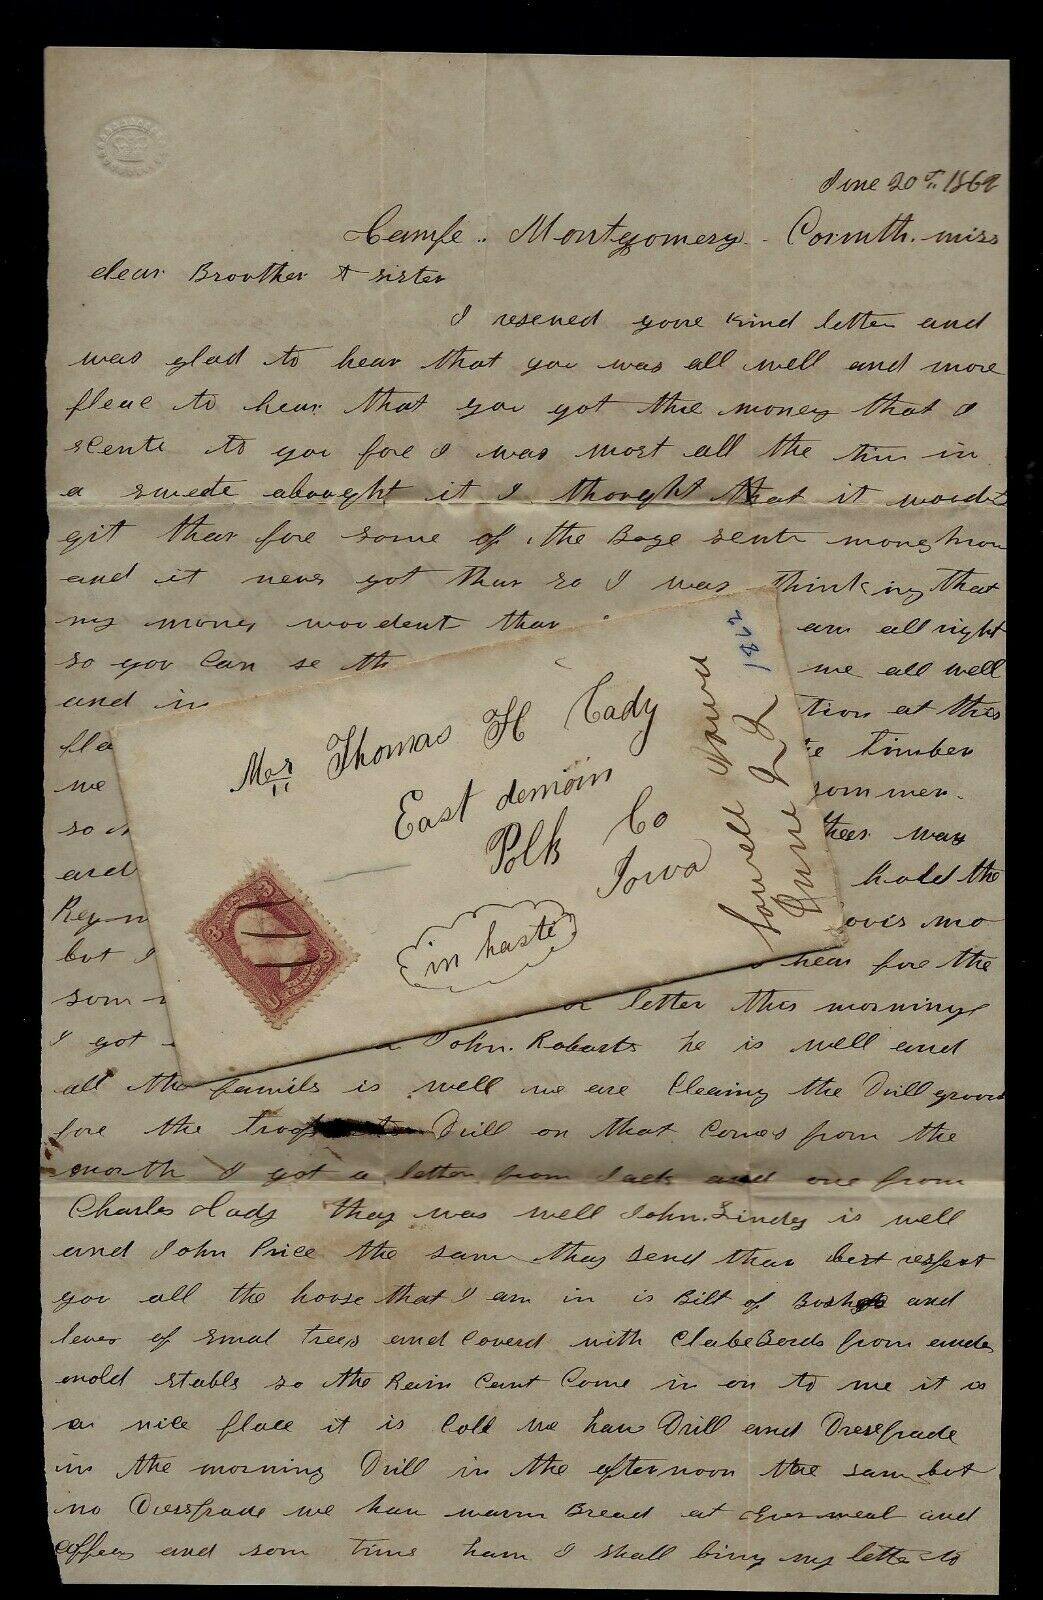 June 20th 1862
Camp .. Montgomery - Corinth. miss
dear Brouther & sister
I reseved youre kind letter and
was glad to hear that you was all well and more
pleae to hear that you got the money that I
sente to you fore I was most all the tim in
a swede abought it I thought that it woodet
git thar fore some of the Boye sente money hom
and it never got thar so I was thinking that
my money woodent thar am all right
so you Can se th me all well
and in tion at this
pla timber
we sommer.
so
and hold the
Regm ovis mo
but I hear fore the
som letter this morning
I got John. Robarts he is well and
all the famils is well we are Cleaing the Drill ground
fore the troops Drill on that Comes from the
north I got a letter from Jack and one from
Charles Cady thay was well John. Lindey is well
and John Price the sam thay send thar best respect
you all the house that I am in is Bilt of Bushes and
leves of smal trees and Coverd with ClabeBords from
onold stable so the Rain Cant Come in on to me it is
a nice place it is Coll we hav Drill and Dressprade
in the morning Drill in the afternoon the sam but
no Dressprade we hav warm Bread at Ever meal and
Coffey and som time ham I shall bing my lette to
Mr Thomas H Cady
East demoin
Polk Co
Iowa
in haste
Lowell Iowa
June 22
1862
3 3